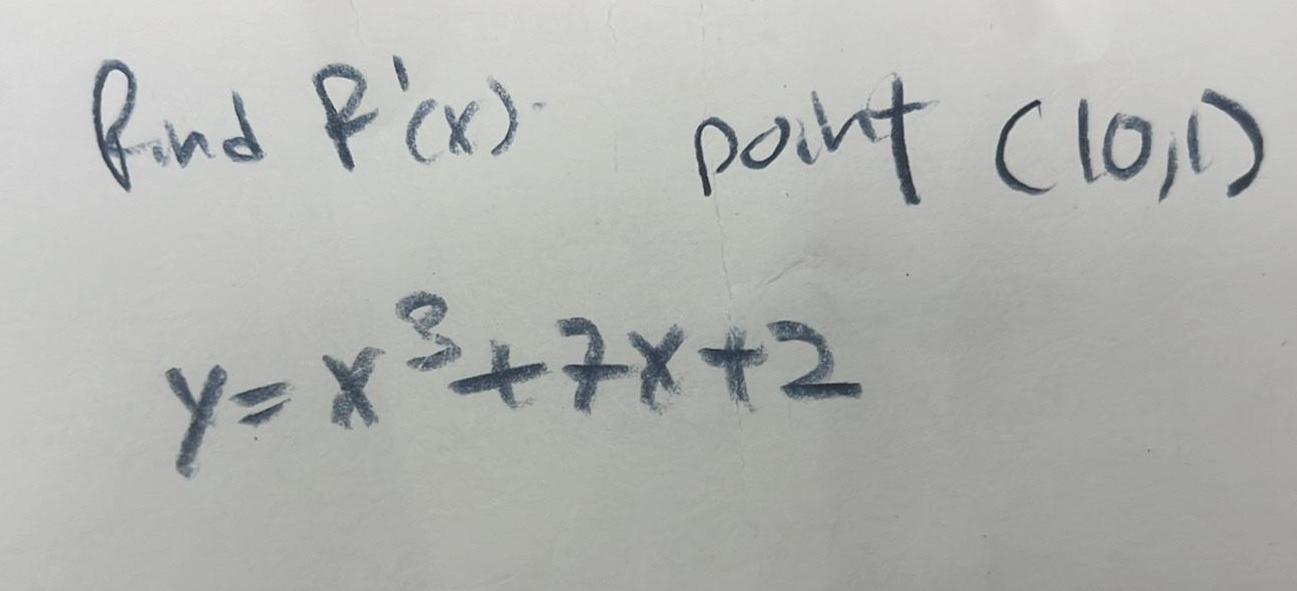 find f'(x). point (10,1)
y=x³+7x+2